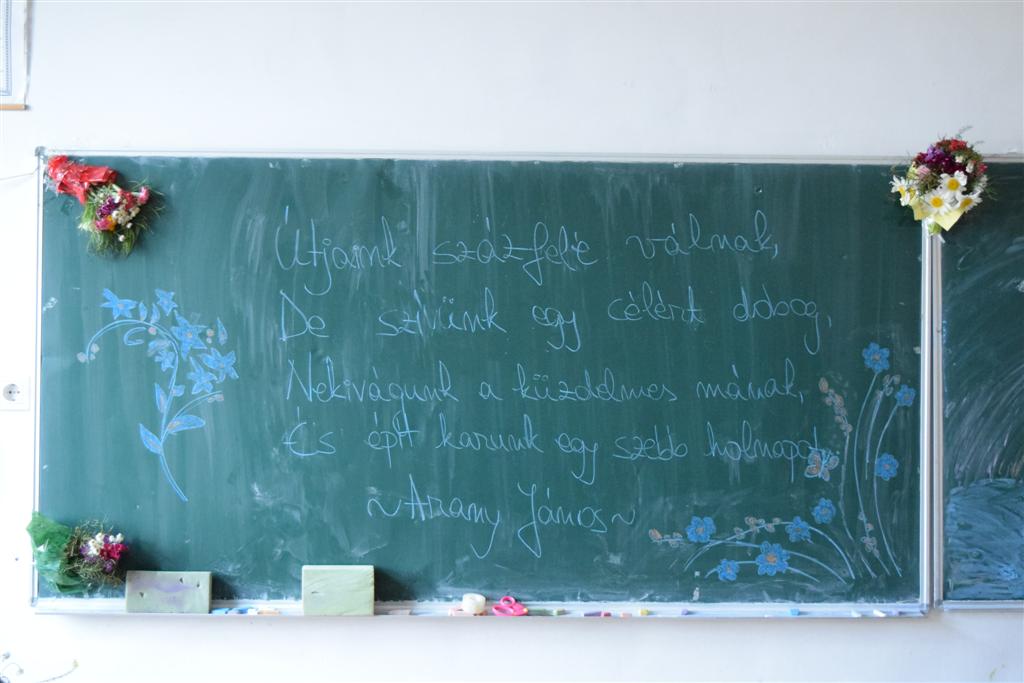 Útjaink százfelé válnak,
De szívünk egy célért dobog,
Nekivágunk a küzdelmes mának,
És épít karunk egy szebb holnapot.
~Arany János~